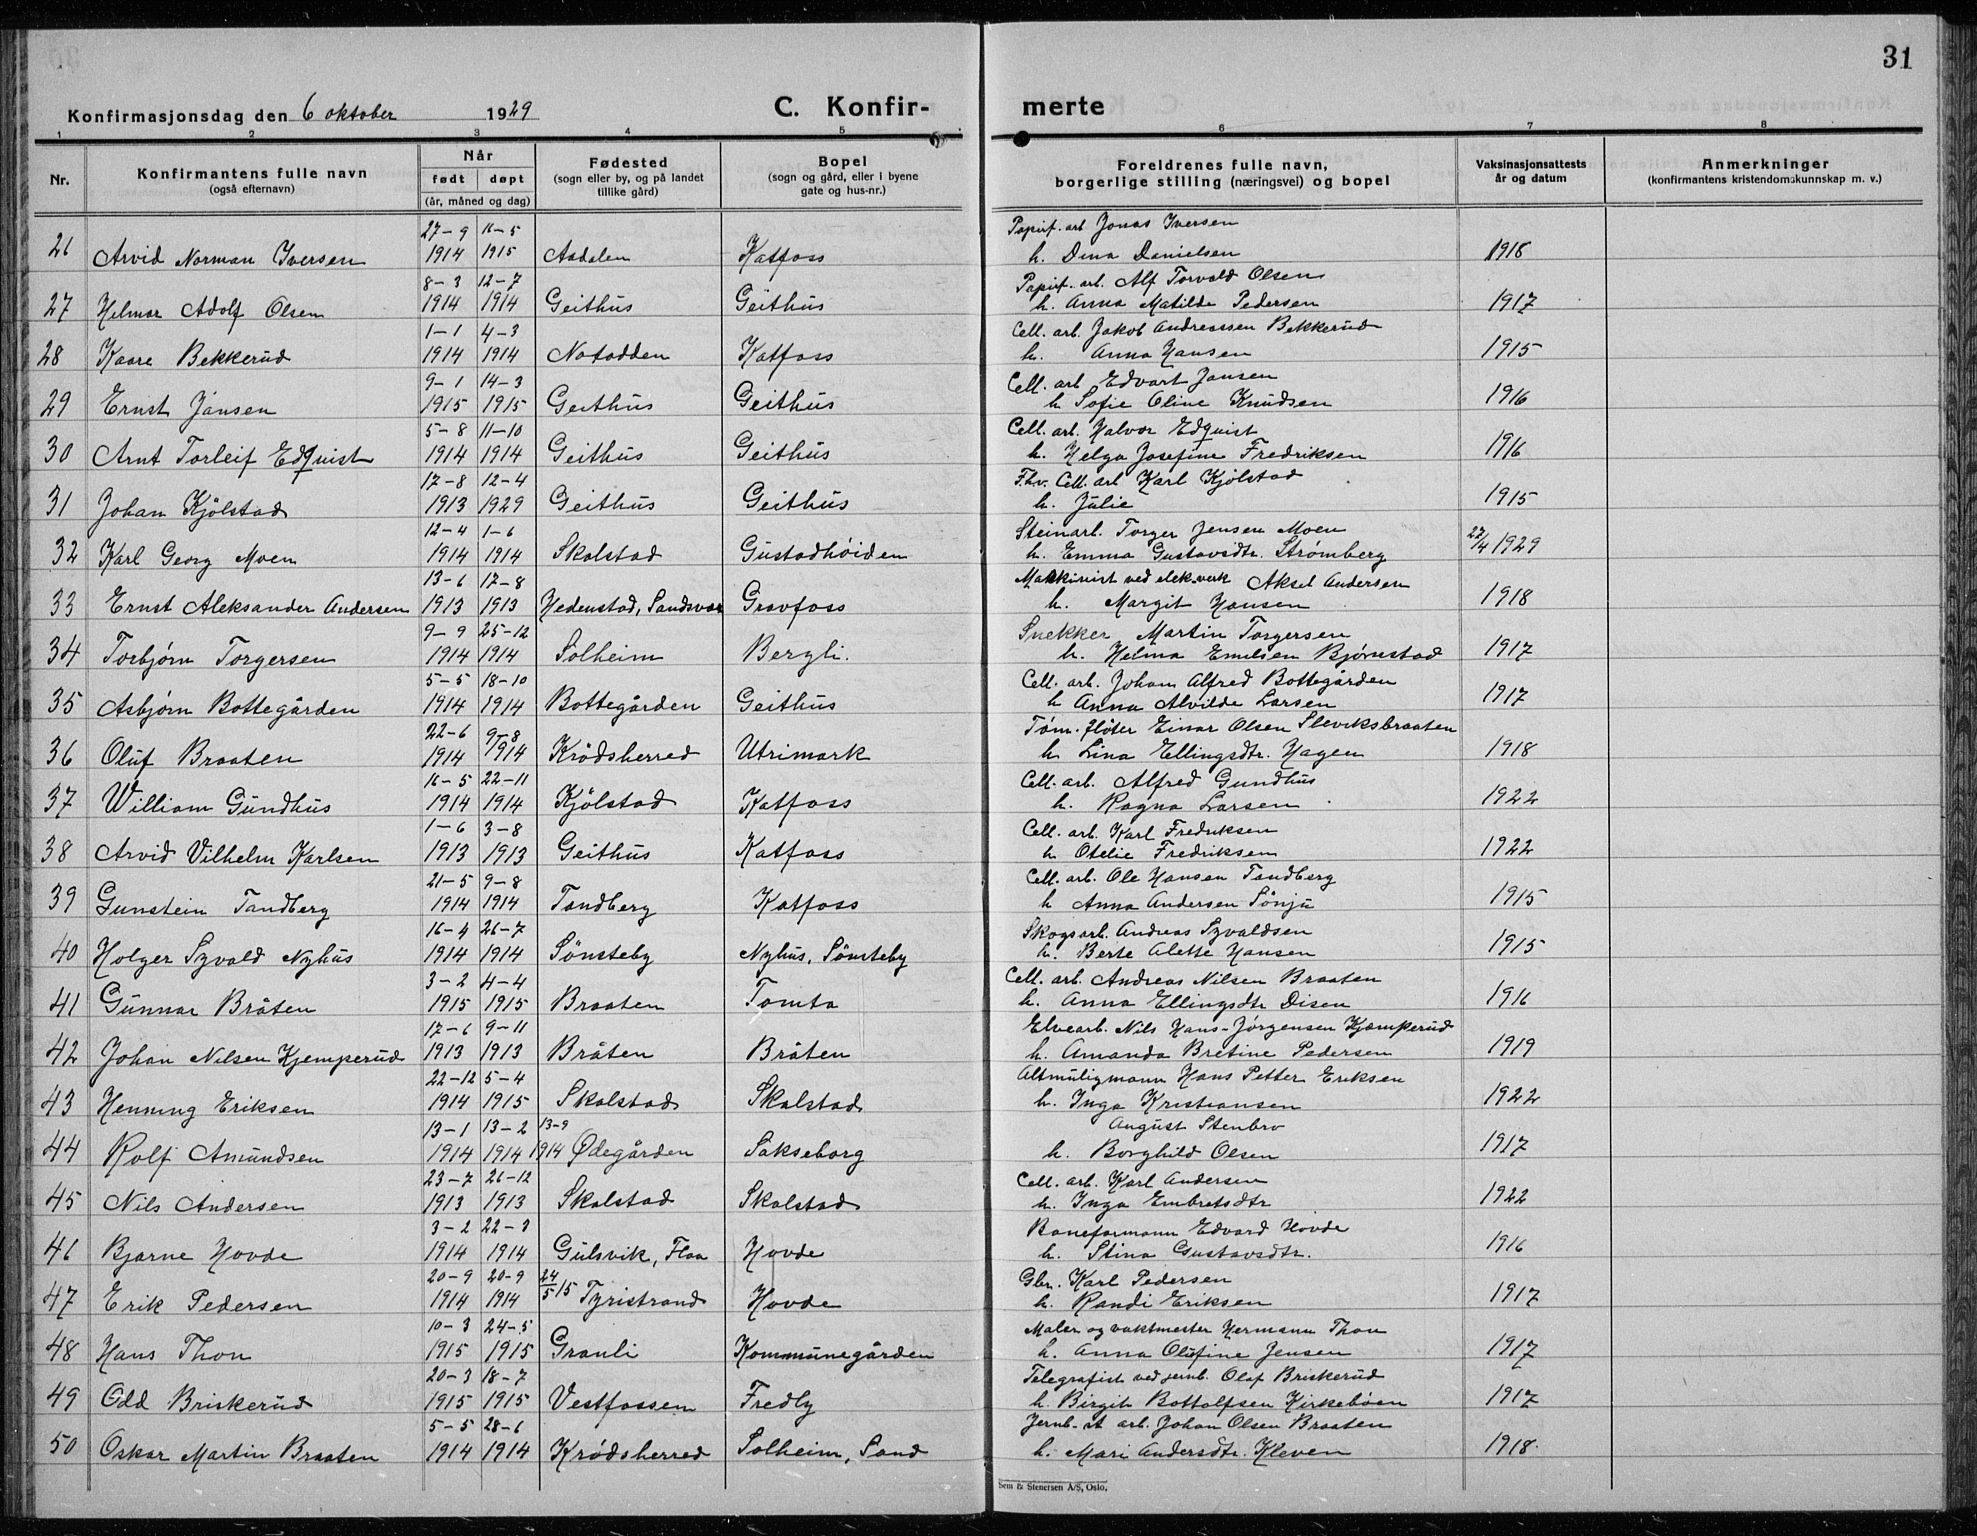 31
Konfirmasjonsdag den 6 oktober 1929
C. Konfir- merte
1 2 3 4 5 6 7 8
Nr. Konfirmantens fulle navn (også efternavn) Når født døpt (år, måned og dag) Fødested (sogn eller by, og på landet tillike gård) Bopel (sogn og gård, eller i byene gate og hus-nr.) Foreldrenes fulle navn, borgerlige stilling (næringsvei) og bopel Vaksinasjonsattests år og datum Anmerkninger (konfirmantens kristendomskunnskap m. v.)
27-9 11-5 Papirf. arb Jonas Iversen
26 Arvid Norman Iversen 1914 1915 Aadalen Katfoss h. Dina Danielsen 1918
8-3 12-7 Papirf. arb. Alf Torvald Olsen
27 Helmar Adolf Olsen 1914 1914 Geithus Geithus h. Anna Matilde Pedersen 1917
1-1 4-3 Cell. arb. Jakob Andreassen Bekkerud
28 Kaare Bekkerud 1914 1914 Notodden Katfoss h. Anna Hansen 1915
9-1 14-3 Cell. arb Edvart Jansen
29 Ernst Jansen 1915 1915 Geithus Geithus h Sofie Oline Knudsen 1916
5-8 11-10 Cell. arb. Halvor Edquist
30 Arnt Torleif Edquist 1914 1914 Geithus Geithus h. Helga Josefine Fredriksen 1916
17-8 12-4 F.hv. Cell. arb Karl Kjölstad
31 Johan Kjölstad 1913 1929 Geithus Geithus h. Julie 1915
12-4 1-6 Steinarb. Torger Jensen Moen
32 Karl Georg Moen 1914 1914 Skalstad Gustadhöiden h. Emma Gustavsdtr. Strømberg 22/4 1929
13-6 17-8 Maskinist ved elek.verk Aksel Andersen
33 Ernst Aleksander Andersen 1913 1913 Hedenstad, Sandsvær Gravfoss h. Margit Hansen 1918
9-9 25-12 Snekker Martin Torgersen
34 Torbjørn Torgersen 1914 1914 Solheim Bergli. h. Helma Emilsen Bjørnstad 1917
5-5 18-10 Cell. arb. Johan Alfred Bottegården
35 Asbjørn Bottegården 1914 1914 Bottegården Geithus h Anna Alvilde Larsen 1917
22-6 9-8 Töm. flöter Einar Olsen Sleviksbraaten
36 Oluf Braaten 1914 1914 Krödsherred Utrimark h Lina Ellingsdtr. Hagen 1918
16-5 22-11 Cell. arb. Alfred Gundhus
37 William Gundhus 1914 1914 Kjölstad Katfoss h. Ragna Larsen 1922
1-6 3-8 Cell. arb. Karl Fredriksen
38 Arvid Vilhelm Karlsen 1913 1913 Geithus Katfoss h Otelie Fredriksen 1922
21-5 9-8 Cell. arb. Ole Hansen Tandberg
39 Gunstein Tandberg 1914 1914 Tandberg Katfoss h Anna Andersen Sönju 1915
16-4 26-7 Skogsarb. Andreas Syvaldsen
40 Holger Syvald Nyhus 1914 1914 Sönsteby Nyhus, Sönsteby h. Berte Alette Hansen 1915
3-2 4-4 Cell. arb. Andreas Nilsen Braaten
41 Gunnar Bråten 1915 1915 Braaten Tomta h. Anna Ellingsdtr Disen 1916
17-6 9-11 Elvearb. Nils Hans-Jörgensen Kjæmperud
42 Johan Nilsen Kjemperud 1913 1913 Bråten Bråten h. Amanda Bretine Pedersen 1919
22-12 5-4 Altmuligmann Hans Petter Eriksen
43 Henning Eriksen 1914 1915 Skalstad Skalstad h. Inga Kristiansen 1922
13-1 13-2 13-9 August Stenbro
44 Rolf Amundsen 1914 1914 1914 Ødegården Sakseborg h. Borghild Olsen 1917
23-7 26-12 Cell. arb. Karl Andersen
45 Nils Andersen 1913 1913 Skalstad Skalstad h. Inga Embretsdtr 1922
3-2 22-3 Baneformann Edvard Hovde
46 Bjarne Hovde 1914 1914 Gulsvik, Flaa Hovde h. Stina Gustavsdtr. 1916
20-9 20-9 24/5 15 Gbr. Karl Pedersen
47 Erik Pedersen 1914 1914 Tyristrand Hovde h. Randi Eriksen 1917
10-3 24-5 Maler og vaktmester Hermann Thon
48 Hans Thon 1915 1915 Granli Kommunegården h. Anna Olufine Jensen 1917
20-3 18-7 Telegrafist ved jernb. Olaf Briskerud
49 Odd Briskerud 1915 1915 Vestfossen Fredly h. Birgit Bottolfsen Kirkebøen 1917
5-5 28-6 Jernb. arb. Johan Olsen Braaten
50 Oskar Martin Braaten 1914 1914 Krødsherred Solheim, Sand h. Mari Andersdtr. Kleven 1918.
Sem & Stenersen A/S, Oslo.